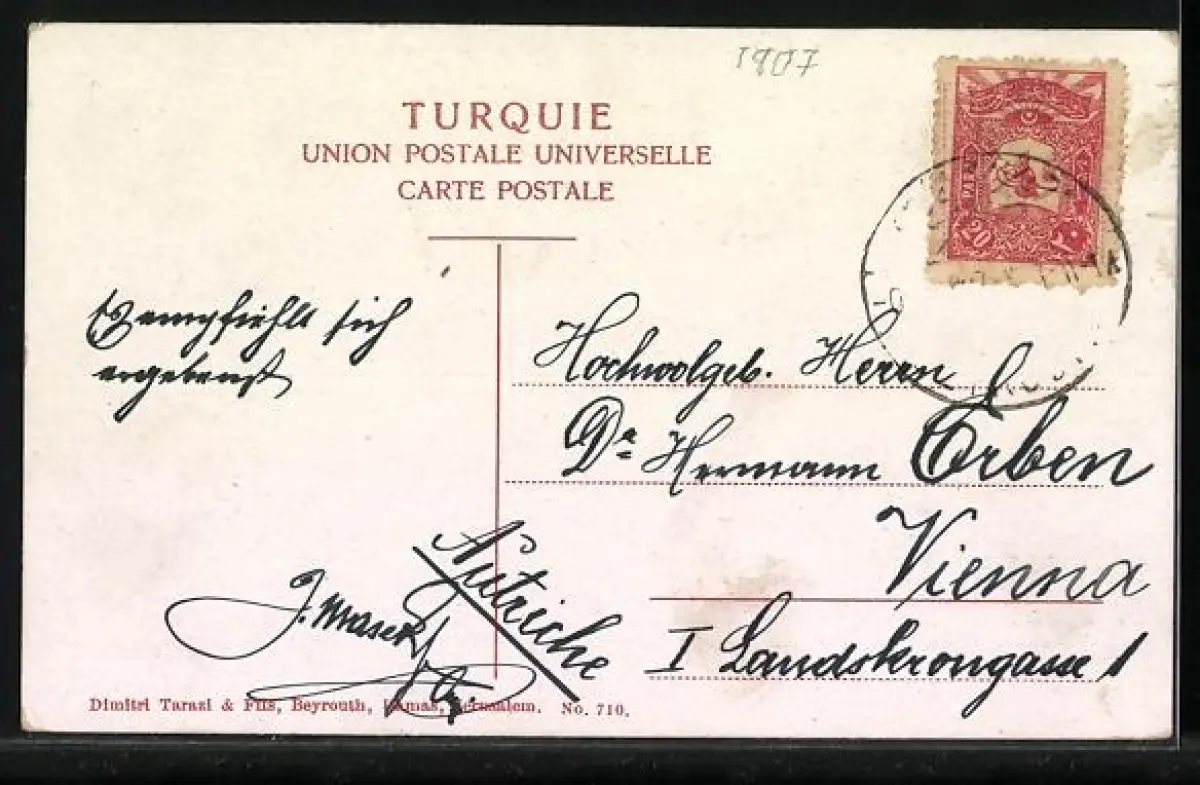 1907
TURQUIE
UNION POSTALE UNIVERSELLE
CARTE POSTALE
20 ٢٠
empfiehlt sich
ergebenst
Hochwolgeb. Herrn
Dr Hermann Erben
Vienna
I Landskrongasse 1
Autriche
Dimitri Tarazi & Fils, Beyrouth, Damas, Jerusalem. No. 710.